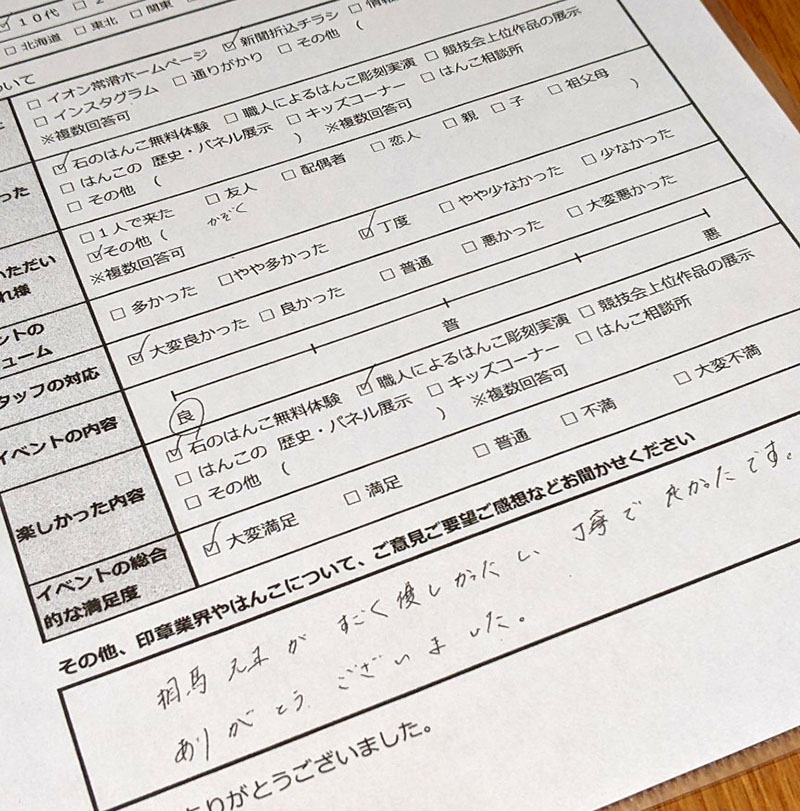 ☑10代 □2
□北海道 □東北 □関東
ついて
□イオン常滑ホームページ ☑新聞折込チラシ □情報
□インスタグラム □通りがかり □その他 (
※複数回答可
☑石のはんこ無料体験 □職人によるはんこ彫刻実演 □競技会上位作品の展示
□はんこの 歴史・パネル展示 □キッズコーナー □はんこ相談所
□その他 ( ) ※複数回答可
った
□1人で来た □友人 □配偶者 □恋人 □親 □子 □祖父母
☑その他 ( かぞく )
※複数回答可
いただい
れ様
□多かった □やや多かった ☑丁度 □やや少なかった □少なかった
ントの
ューム
☑大変良かった □良かった □普通 □悪かった □大変悪かった
タッフの対応
良 普 悪
イベントの内容
☑石のはんこ無料体験 ☑職人によるはんこ彫刻実演 □競技会上位作品の展示
□はんこの 歴史・パネル展示 □キッズコーナー □はんこ相談所
□その他 ( ) ※複数回答可
楽しかった内容
☑大変満足 □満足 □普通 □不満 □大変不満
イベントの総合
的な満足度
その他、印章業界やはんこについて、ご意見ご要望ご感想などお聞かせください
相馬 がすごく優しかったし 丁寧で よかったです。
ありがとう ございました。
ありがとうございました。